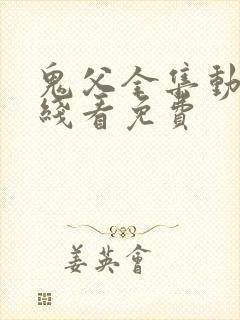 鬼父全集動
綫看免費
姜英會